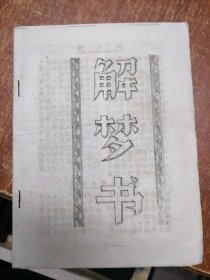 解梦书